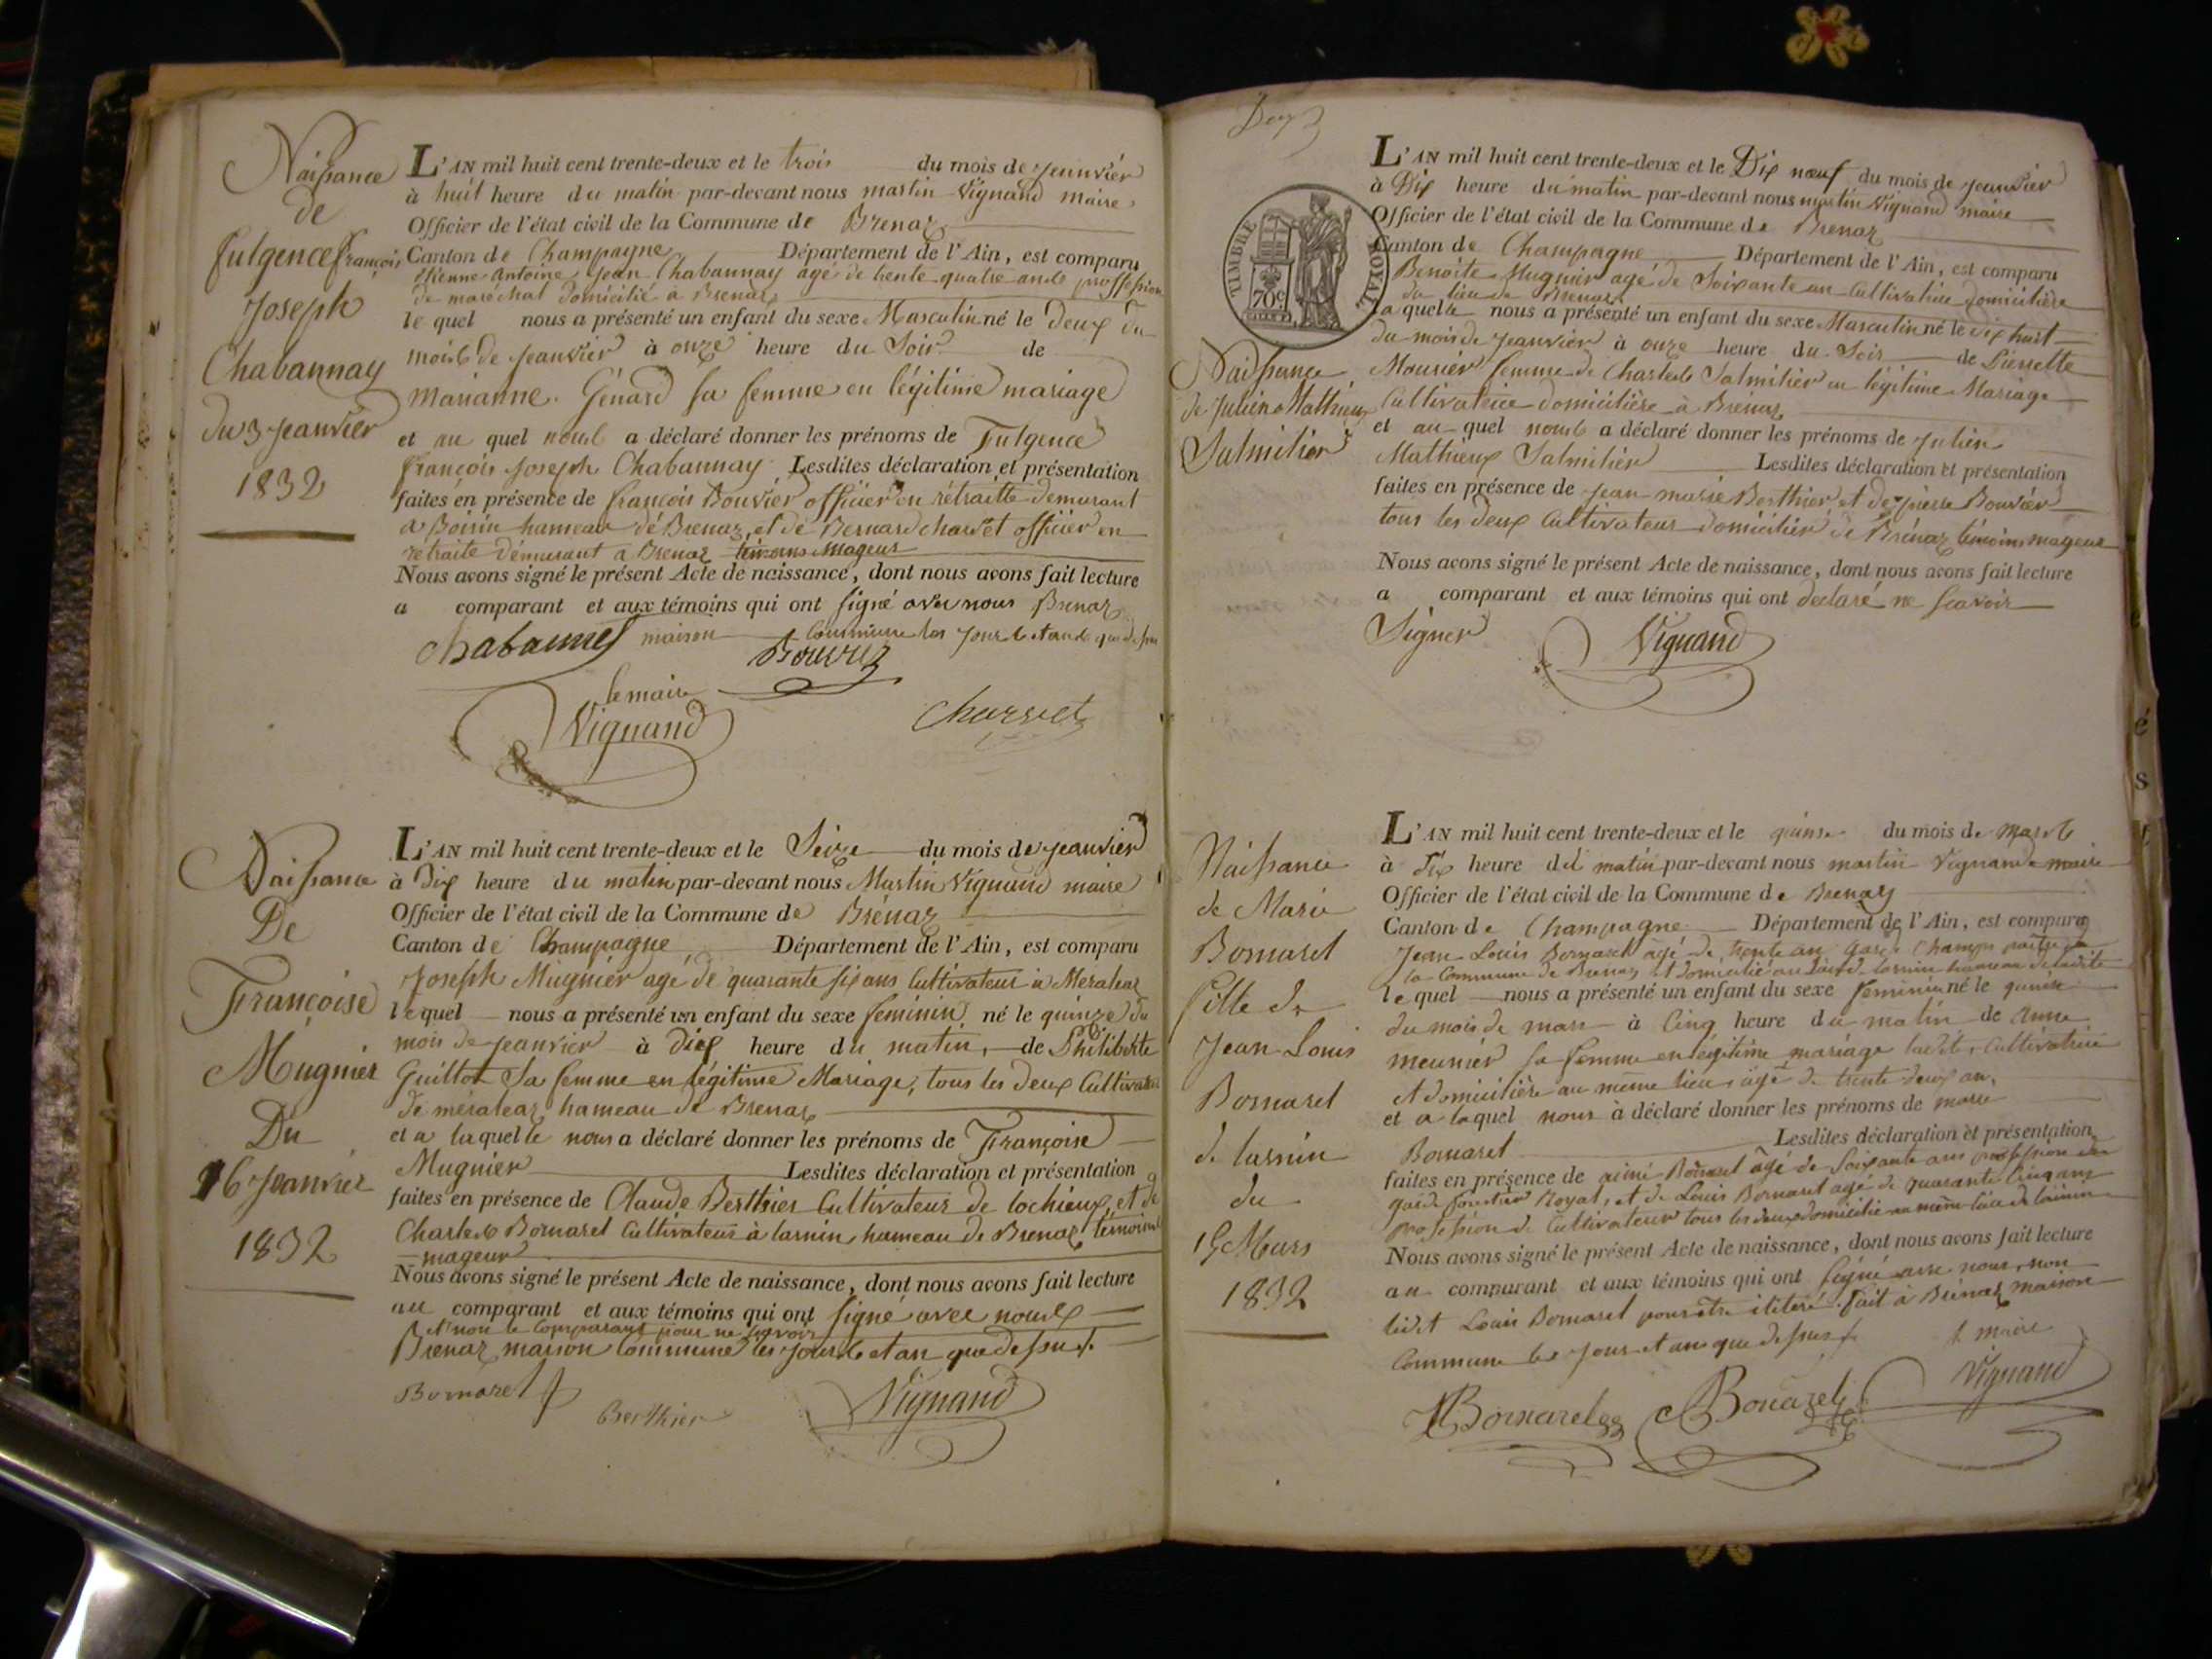 Naissance
de
fulgence françois
Joseph
Chabannay
du 3 jeanvier
1832
L'AN mil huit cent trente-deux et le trois du mois de jeanvier
à huit heure du matin par-devant nous martin Vignand maire
Officier de l'état civil de la Commune de Brenaz
Canton de Champagne Département de l'Ain, est comparu
étienne antoine jean Chabannay agé de trente quatre ands proffession
de maréchal domicilié a Brenaz
le quel nous a présenté un enfant du sexe Masculin né le deux du
mois de jeanvier à onze heure du Soir de
marianne Génard sa femme en légitime mariage
et au quel nous a déclaré donner les prénoms de Fulgence
françois joseph Chabannay Lesdites déclaration et présentation
faites en présence de françois Bouvier officier en rétraitte demurant
a Boisin hameau de Brenaz, et de Bernard charvet officier en
retraite démurant a Brenaz témoins mageur
Nous avons signé le présent Acte de naissance, dont nous avons fait lecture
a comparant et aux témoins qui ont signé avec nous Brenaz
maison Commune les jours et ands que dessus
Chabannes
Bouvier
le maire
Vignand
Charvet
Naissance
De
Françoise
Mugnier
Du
16 Jeanvier
1832
L'AN mil huit cent trente-deux et le Seize du mois de jeanvier
à dix heure du matin par-devant nous Martin Vignand maire
Officier de l'état civil de la Commune de Brénaz
Canton de Champagne Département de l'Ain, est comparu
Joseph Mugnier agé de quarante six ans Cultivateur à Meraleaz
le quel nous a présenté un enfant du sexe féminin né le quinze du
mois de jeanvier à dix heure du matin, de Philiberte
Guillot Sa femme en légitime Mariage, tous les deux Cultivateur
de méraleaz hameau de Brenaz
et a laquelle nous a déclaré donner les prénoms de Françoise
Mugnier Lesdites déclaration et présentation
faites en présence de Claude Berthier Cultivateur de lochieux, et de
Charles Bornarel Cultivateur à larnin hameau de Brenaz témoins
mageur
Nous avons signé le présent Acte de naissance, dont nous avons fait lecture
au comparant et aux témoins qui ont signé avec nous
et non le comparant pour ne savoir
Brenaz maison Commune les jours et an que dessus
Bornarel
Berthier
Vignand
Deux
TIMBRE ROYAL
70c
Naissance
de Julien Mathieux
Salmitier
L'AN mil huit cent trente-deux et le Dix neuf du mois de jeanvier
à Dix heure du matin par-devant nous martin Vignand maire
Officier de l'état civil de la Commune de Brenaz
Canton de Champagne Département de l'Ain, est comparu
Benoite Mugnier agé de Soixante an Cultivatrice domicilière
du lieu de Brenaz
la quelle nous a présenté un enfant du sexe Masculin né le dix huit
du mois de jeanvier à onze heure du Soir de Pierrette
Mounier femme de Charles Salmitier en légitime Mariage
Cultivatrice domicilière à Brénaz
et au quel nous a déclaré donner les prénoms de julien
Mathieux Salmitier Lesdites déclaration et présentation
faites en présence de jean marie Berthier et de pierre Bouvier
tous les deux Cultivateur domicilier de Brénaz témoins mageur
Nous avons signé le présent Acte de naissance, dont nous avons fait lecture
a comparant et aux témoins qui ont declaré ne scavoir
Signer
Vignand
Naissance
de Marie
Bornarel
fille de
Jean Louis
Bornarel
de larnin
du
15 Mars
1832
L'AN mil huit cent trente-deux et le quinse du mois de mars
à dix heure du matin par-devant nous martin Vignand maire
Officier de l'état civil de la Commune de Brenaz
Canton de Champagne Département de l'Ain, est comparu
Jean Louis Bornarel agé de trente an garde Champs
la Commune de Brenaz et domicilié au lieu de larnin hameau de ladite
le quel nous a présenté un enfant du sexe feminin né le quinse
du mois de mars à Cinq heure du matin de anne
meunier sa femme en légitime mariage ladite Cultivatrice
et domicilière au même lieu, agé de trente deux an,
et a laquel nous à déclaré donner les prénoms de marie
Bornarel Lesdites déclaration et présentation
faites en présence de aimé Bornarel âgé de Soixante ans profession de
garde forestier Royal, et de Louis Bornarel agé de quarante Cinq ans
profession de Cultivateur tous les deux domicilié au même lieu de larnin
Nous avons signé le présent Acte de naissance, dont nous avons fait lecture
au comparant et aux témoins qui ont signé avec nous, non
ledit Louis Bornarel pour etre iliteré. fait a Brénaz maison
Commune les jour et ans que dessus
le maire
JLBornarel
Bonarel
Vignand